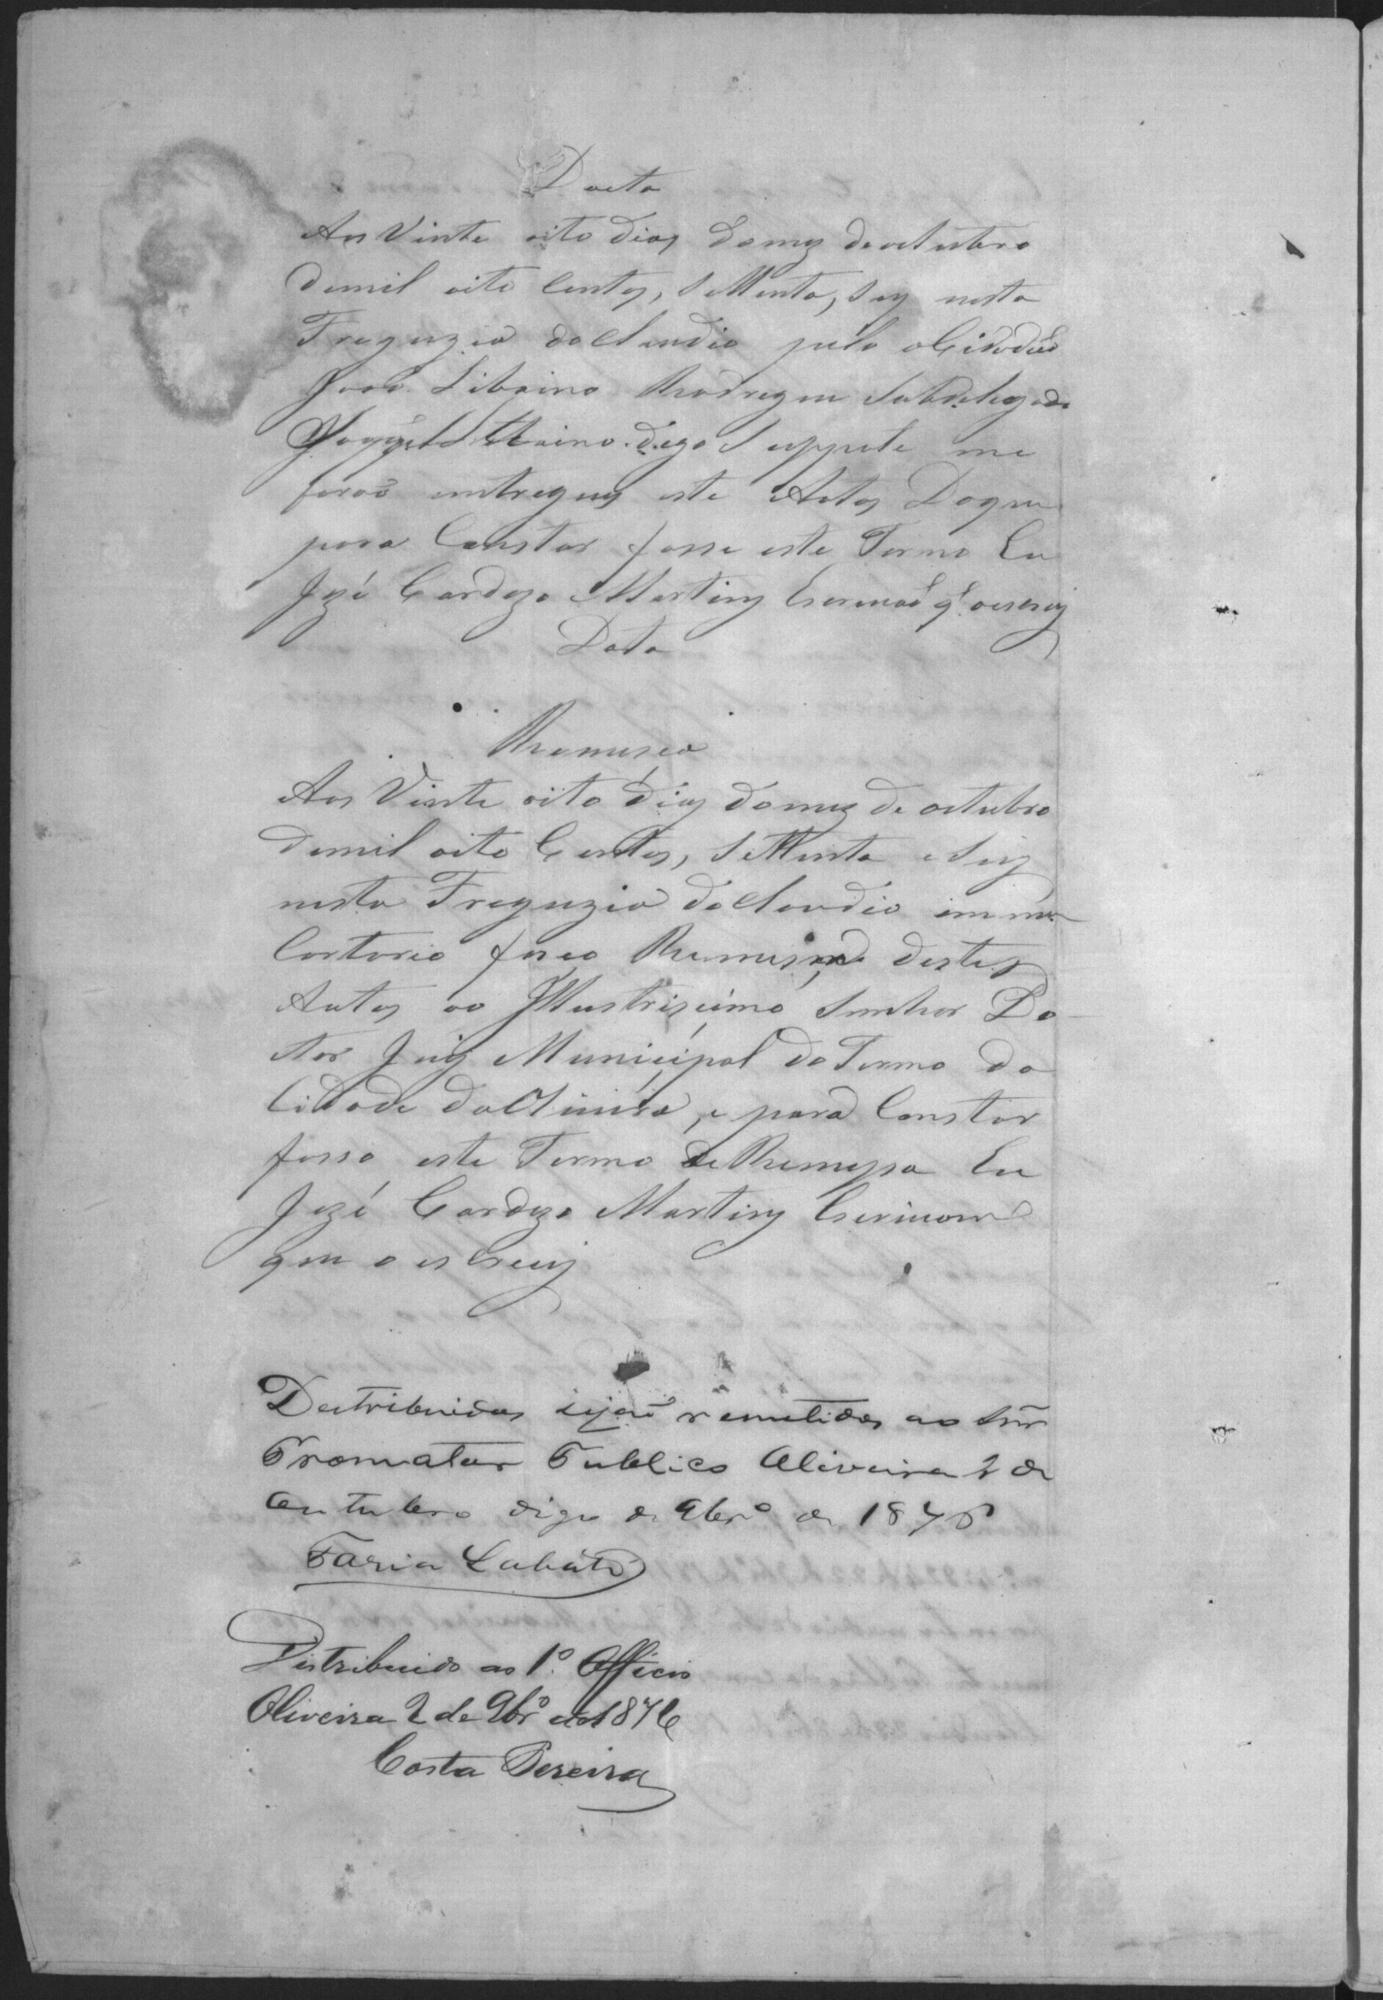 Dacta
Aos Vinte oito Dias Domez de octubro
Demil oito Centos, Settenta, Seis nesta
Freguzia do Claudio pelo oCidadão
João Libaino Rhodrigues Subdelegado
digo Supplente me
forão entregues este Autos Doque
para Constar fasso este Termo Eu
Jozé Cardozo Martins Escrivaõ q̃ oescrevy
Data
Rhemessa
Aos Vinte oito dias domez de octubro
Demil oito Centos, Settenta eSeis
nesta Freguzia do Claudio em meu
Cartorio faseo Rhemessa destes
Autos ao Illustrissimo Senhor Do
ctor Juiz Municipal do Termo da
Cidade dactiviera, e para Constar
fasso este Termo de Rhemessa Eu
Jozé Cardozo Martins Escrivam
que o escrevy
Destribuidos sejaõ remetidos ao Snr
Promotor Publico Oliveira 2 de
Outubro digo de 9brº de 1876
Faria Lobato
Distribuido ao 1º. Officio
Oliveira 2 de 9brº de 1876
Costa Pereira